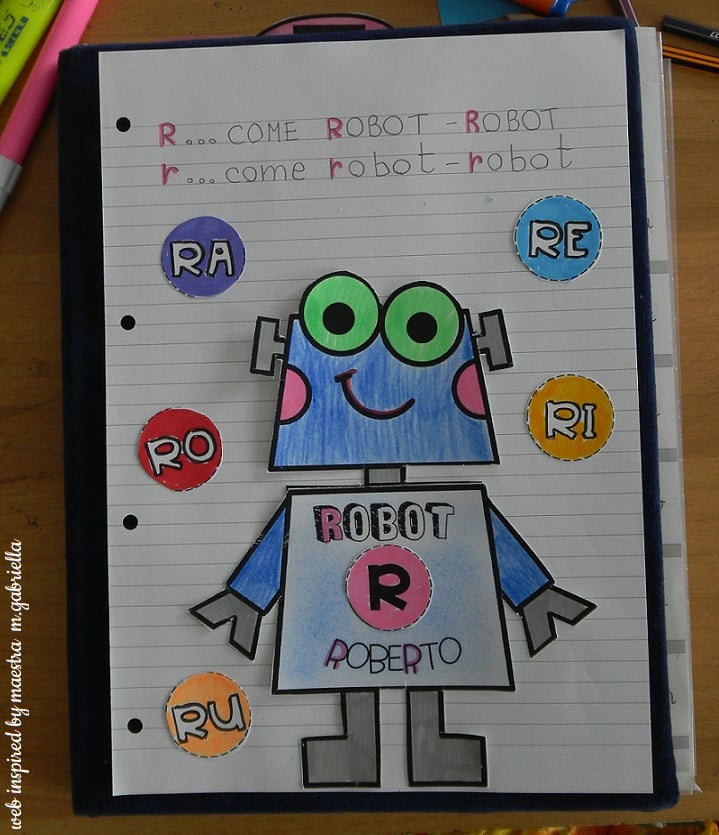 R... COME ROBOT - ROBOT
r... come robot - robot
RA
RE
RO
RI
ROBOT
R
ROBERTO
RU
web inspired by maestra m.gabriella